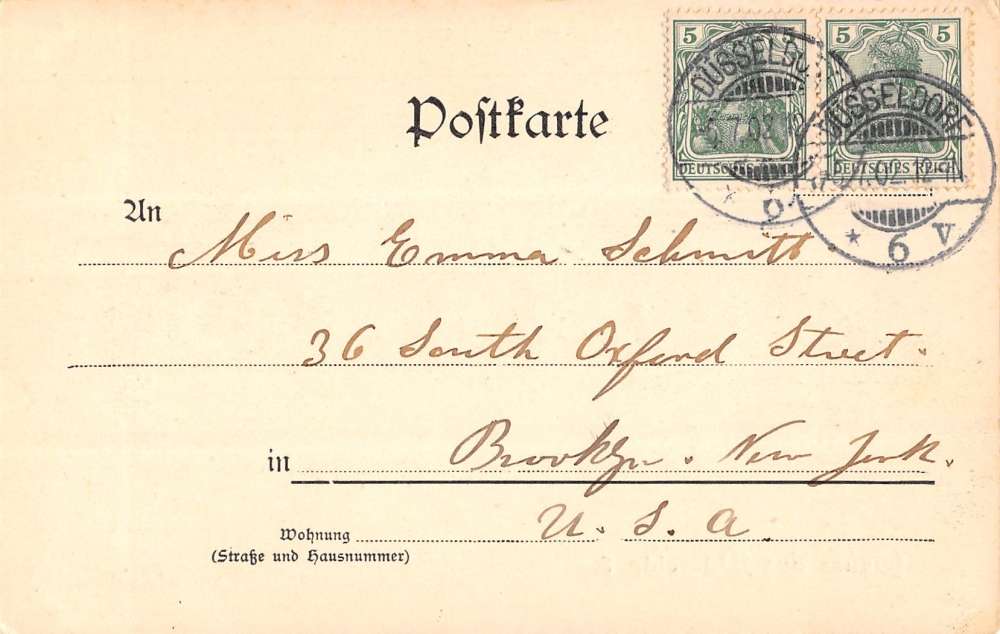 5 5 5 5
DÜSSELDORF
DÜSSELDORF
DEUTSCHES REICH
DEUTSCHES REICH
* 6 V
Postkarte
An
Miss Emma Schmitt
36 South Oxford Street.
in
Brooklyn. New York.
U. S. A
Wohnung
(Straße und Hausnummer)